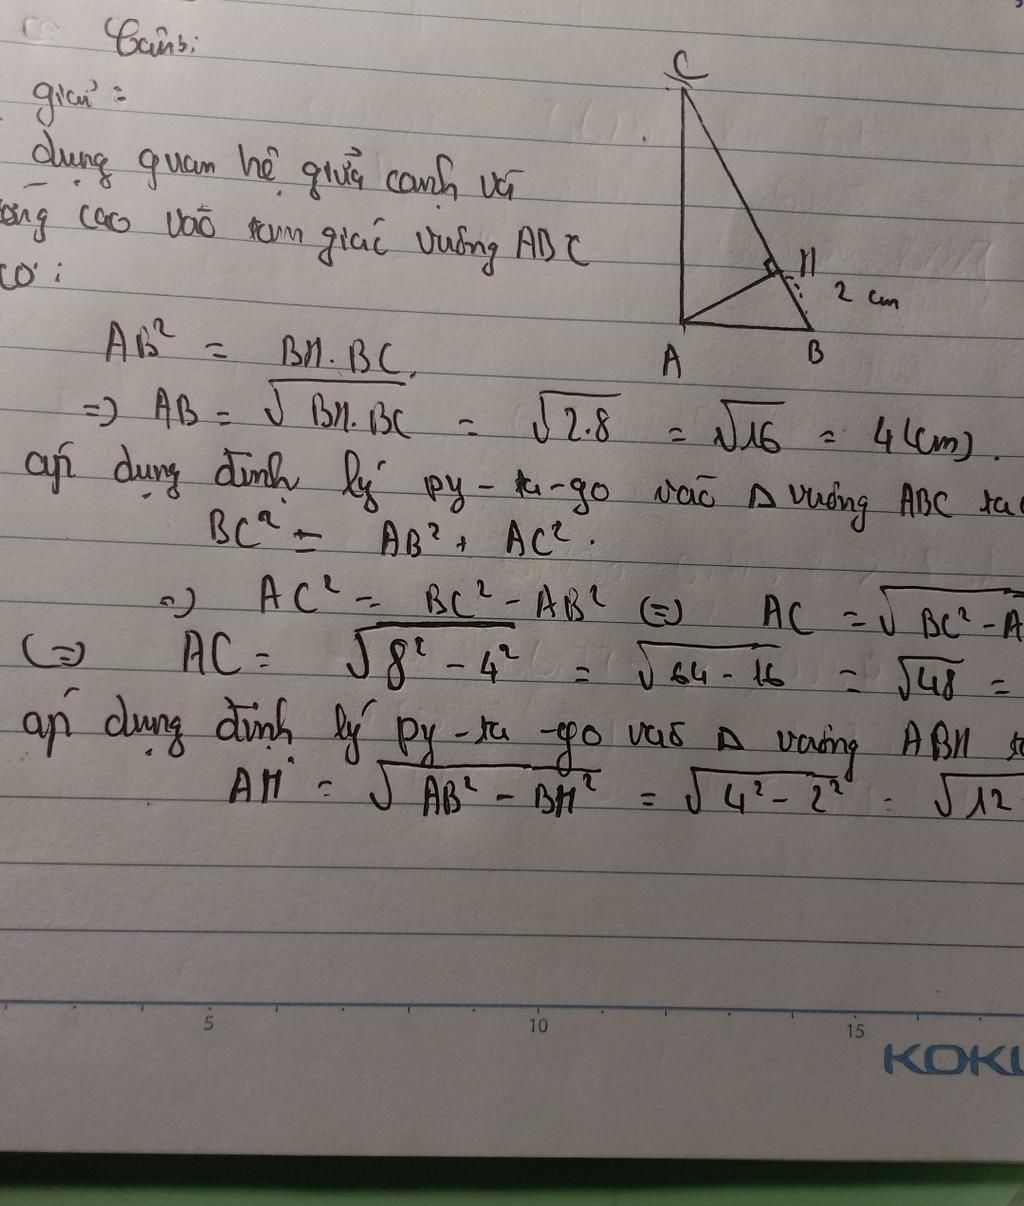 Câu 5:
giải:
dụng quan hệ giữa cạnh và
ờng cao vào tam giác vuông ABC
có:
C
H
2 cm
A
B
AB² = BH.BC
=> AB = √BH.BC = √2.8 = √16 = 4(cm).
áp dụng định lý py-ta-go vào Δ vuông ABC ta
BC² = AB² + AC².
=> AC² = BC² - AB² (=) AC = √BC² - A
(=) AC = √8² - 4² = √64 - 16 = √48 =
áp dụng định lý py-ta-go vào Δ vuông ABH t
AH = √AB² - BH² = √4² - 2² = √12
5
10
15
KOKU